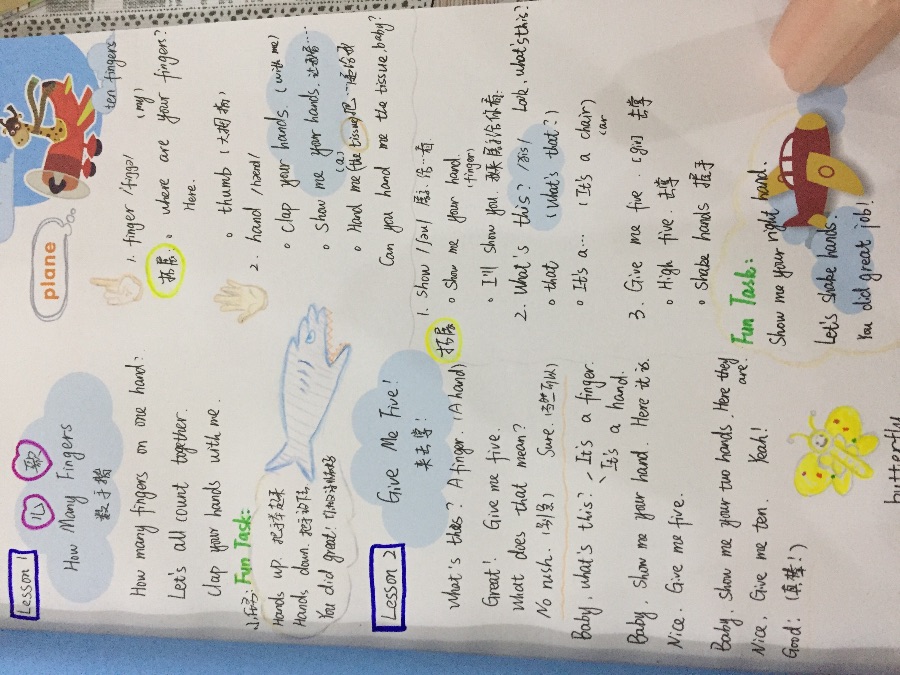 Lesson 1
儿歌
How Many Fingers
数手指
How many fingers on one hand?
Let's all count together.
Clap your hands with me.
Fun Task:
Hands up. 把手举起来
Hands down. 把手放下
You did great!
plane
ten fingers
1. finger /fɪŋgə/
(my)
拓展: where are your fingers?
Here.
thumb (大拇指)
2. hand /hænd/
Clap your hands. (with me)
Show me your hands. 让我看看....
(a)
Hand me (the tissue)
Can you hand me the tissue, baby?
Lesson 2
Give Me Five!
来击掌!
What's this? A finger (A hand)
Great! Give me five.
What does that mean?
No rush. (别急) Sure. (当然可以)
Baby, what's this? It's a finger.
It's a hand.
Baby, Show me your hand. Here it is.
Nice. Give me five.
Baby, Show me your two hands. Here they are.
Nice, Give me ten Yeah!
Good! (真棒!)
拓展
1. Show /ʃəu/ 展示, 给..看
Show me your hand.
(finger)
I'll show you 我来展示给你看.
2. What's this? /ðis/ Look, what's this?
that (What's that?)
It's a... (It's a chair)
car
3. Give me five. [giv] 击掌
High five. 击掌
Shake hands 握手
Fun Task:
Show me your right hand.
Let's shake hands.
You did great job!
butterfly